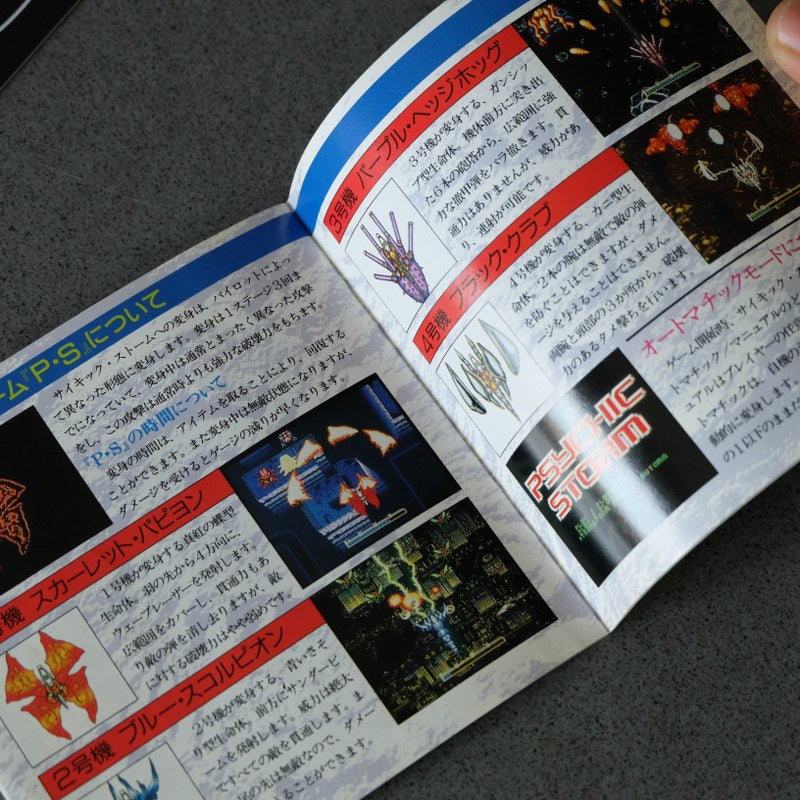 ーム『P・S』について
サイキック・ストームへの変身は、パイロットによっ
て異なった形態に変身します。変身は1ステージ3回ま
でになっていて、変身中は通常とまったく異なった攻撃
をし、この攻撃は通常時よりも強力な破壊力をもちます。
『P・S』の時間について
変身の時間は、アイテムを取ることにより、回復する
ことができます。また変身中は無敵状態になりますが、
ダメージを受けるとゲージの減りが早くなります。
号機 スカーレット・パピヨン
1号機が変身する真紅の蝶型
生命体。羽の先から4方向に、
ウェーブレーザーを発射します。
広範囲をカバーし、貫通力もあ
り敵の弾を消し去りますが、敵
に対する破壊力はやや弱めです。
2号機 ブルー・スコルピオン
2号機が変身する、青いさそ
り型生命体。前方にサンダービ
ームを発射します。威力は絶大
ですべての敵を貫通します。ま
の先は無敵なので、ダメー
ることができます。
3号機 パープル・ヘッジホッグ
3号機が変身する、ガンシッ
プ型生命体。機体前方に突き出
た6本の砲塔から、広範囲に強
力な徹甲弾をバラ撒きます。貫
通力はありませんが、威力があ
り、連射が可能です。
4号機 ブラック・クラブ
4号機が変身する、カニ型生
命体。2本の腕は無敵で敵の弾
を防ぐことはできますが、ダメ
ージを与えることはできません。
両腕と頭部の3か所から、破壊
力のあるダメ撃ちを行います。
オートマチックモードに
ゲーム開始時、サイキック・
トマチック/マニュアルのど
ュアルはプレイヤーの任
トマチックは、自機の
動的に変身します。
の1以下のままだ
PSYCHIC
STORM